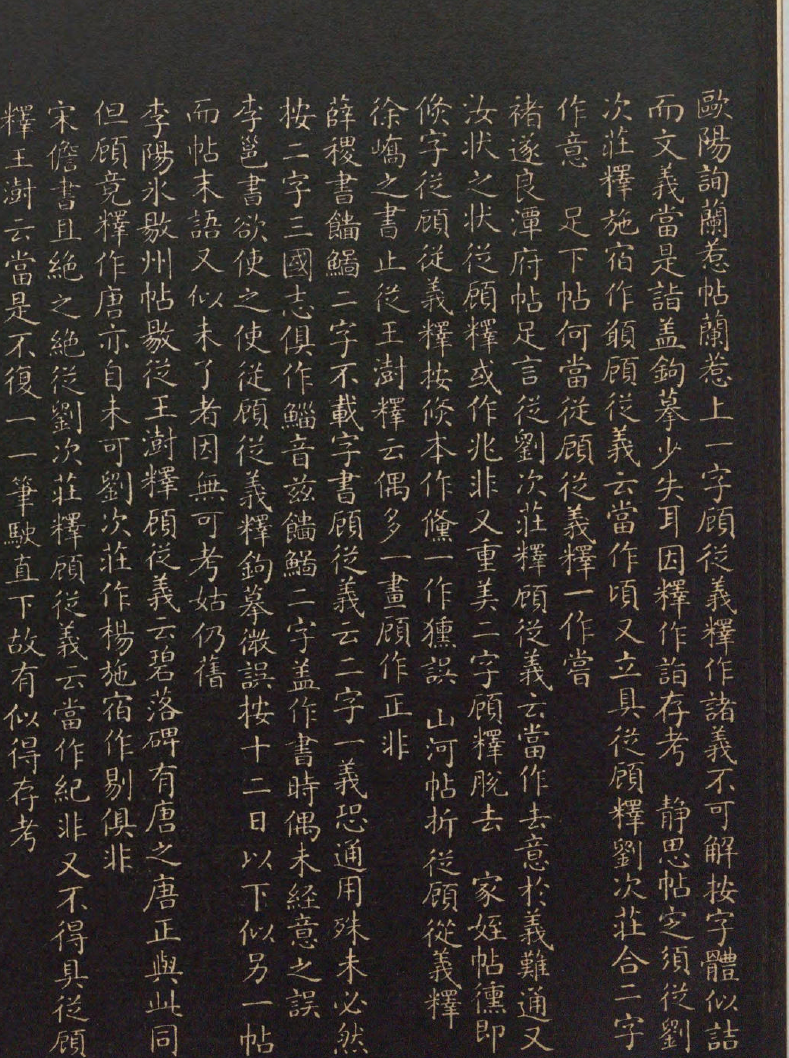 歐陽詢蘭惹帖蘭惹上一字顧從義釋作諸義不可解按字體似詰
而文義當是詣盖鉤摹少失耳因釋作詣存考　静思帖定須從劉
次莊釋施宿作頟顧從義云當作頃又立具從顧釋劉次莊合二字
作意　足下帖何當從顧從義釋一作嘗
褚遂良潭府帖足言從劉次莊釋顧從義云當作去意於義難通又
汝狀之狀從顧釋或作兆非又重美二字顧釋脫去　家姪帖儵即
倏字從顧從義釋按倏本作儵一作獯誤　山河帖折從顧從義釋
徐嶠之書止從王澍釋云偶多一畫顧作正非
薛稷書䭔鯣二字不載字書顧從義云二字一義恐通用殊未必然
按二字三國志俱作鯔音兹䭔鯣二字盖作書時偶未經意之誤
李邕書欲使之使從顧從義釋鉤摹微誤按十二日以下似另一帖
而帖末語又似未了者因無可考姑仍舊
李陽氷歇州帖歇從王澍釋顧從義云碧落碑有唐之唐正與此同
但顧竟釋作唐亦自未可劉次莊作楊施宿作剔俱非
宋儋書且絶之絶從劉次莊釋顧從義云當作紀非又不得具從顧
釋王澍云當是不復一一筆駛直下故有似得存考